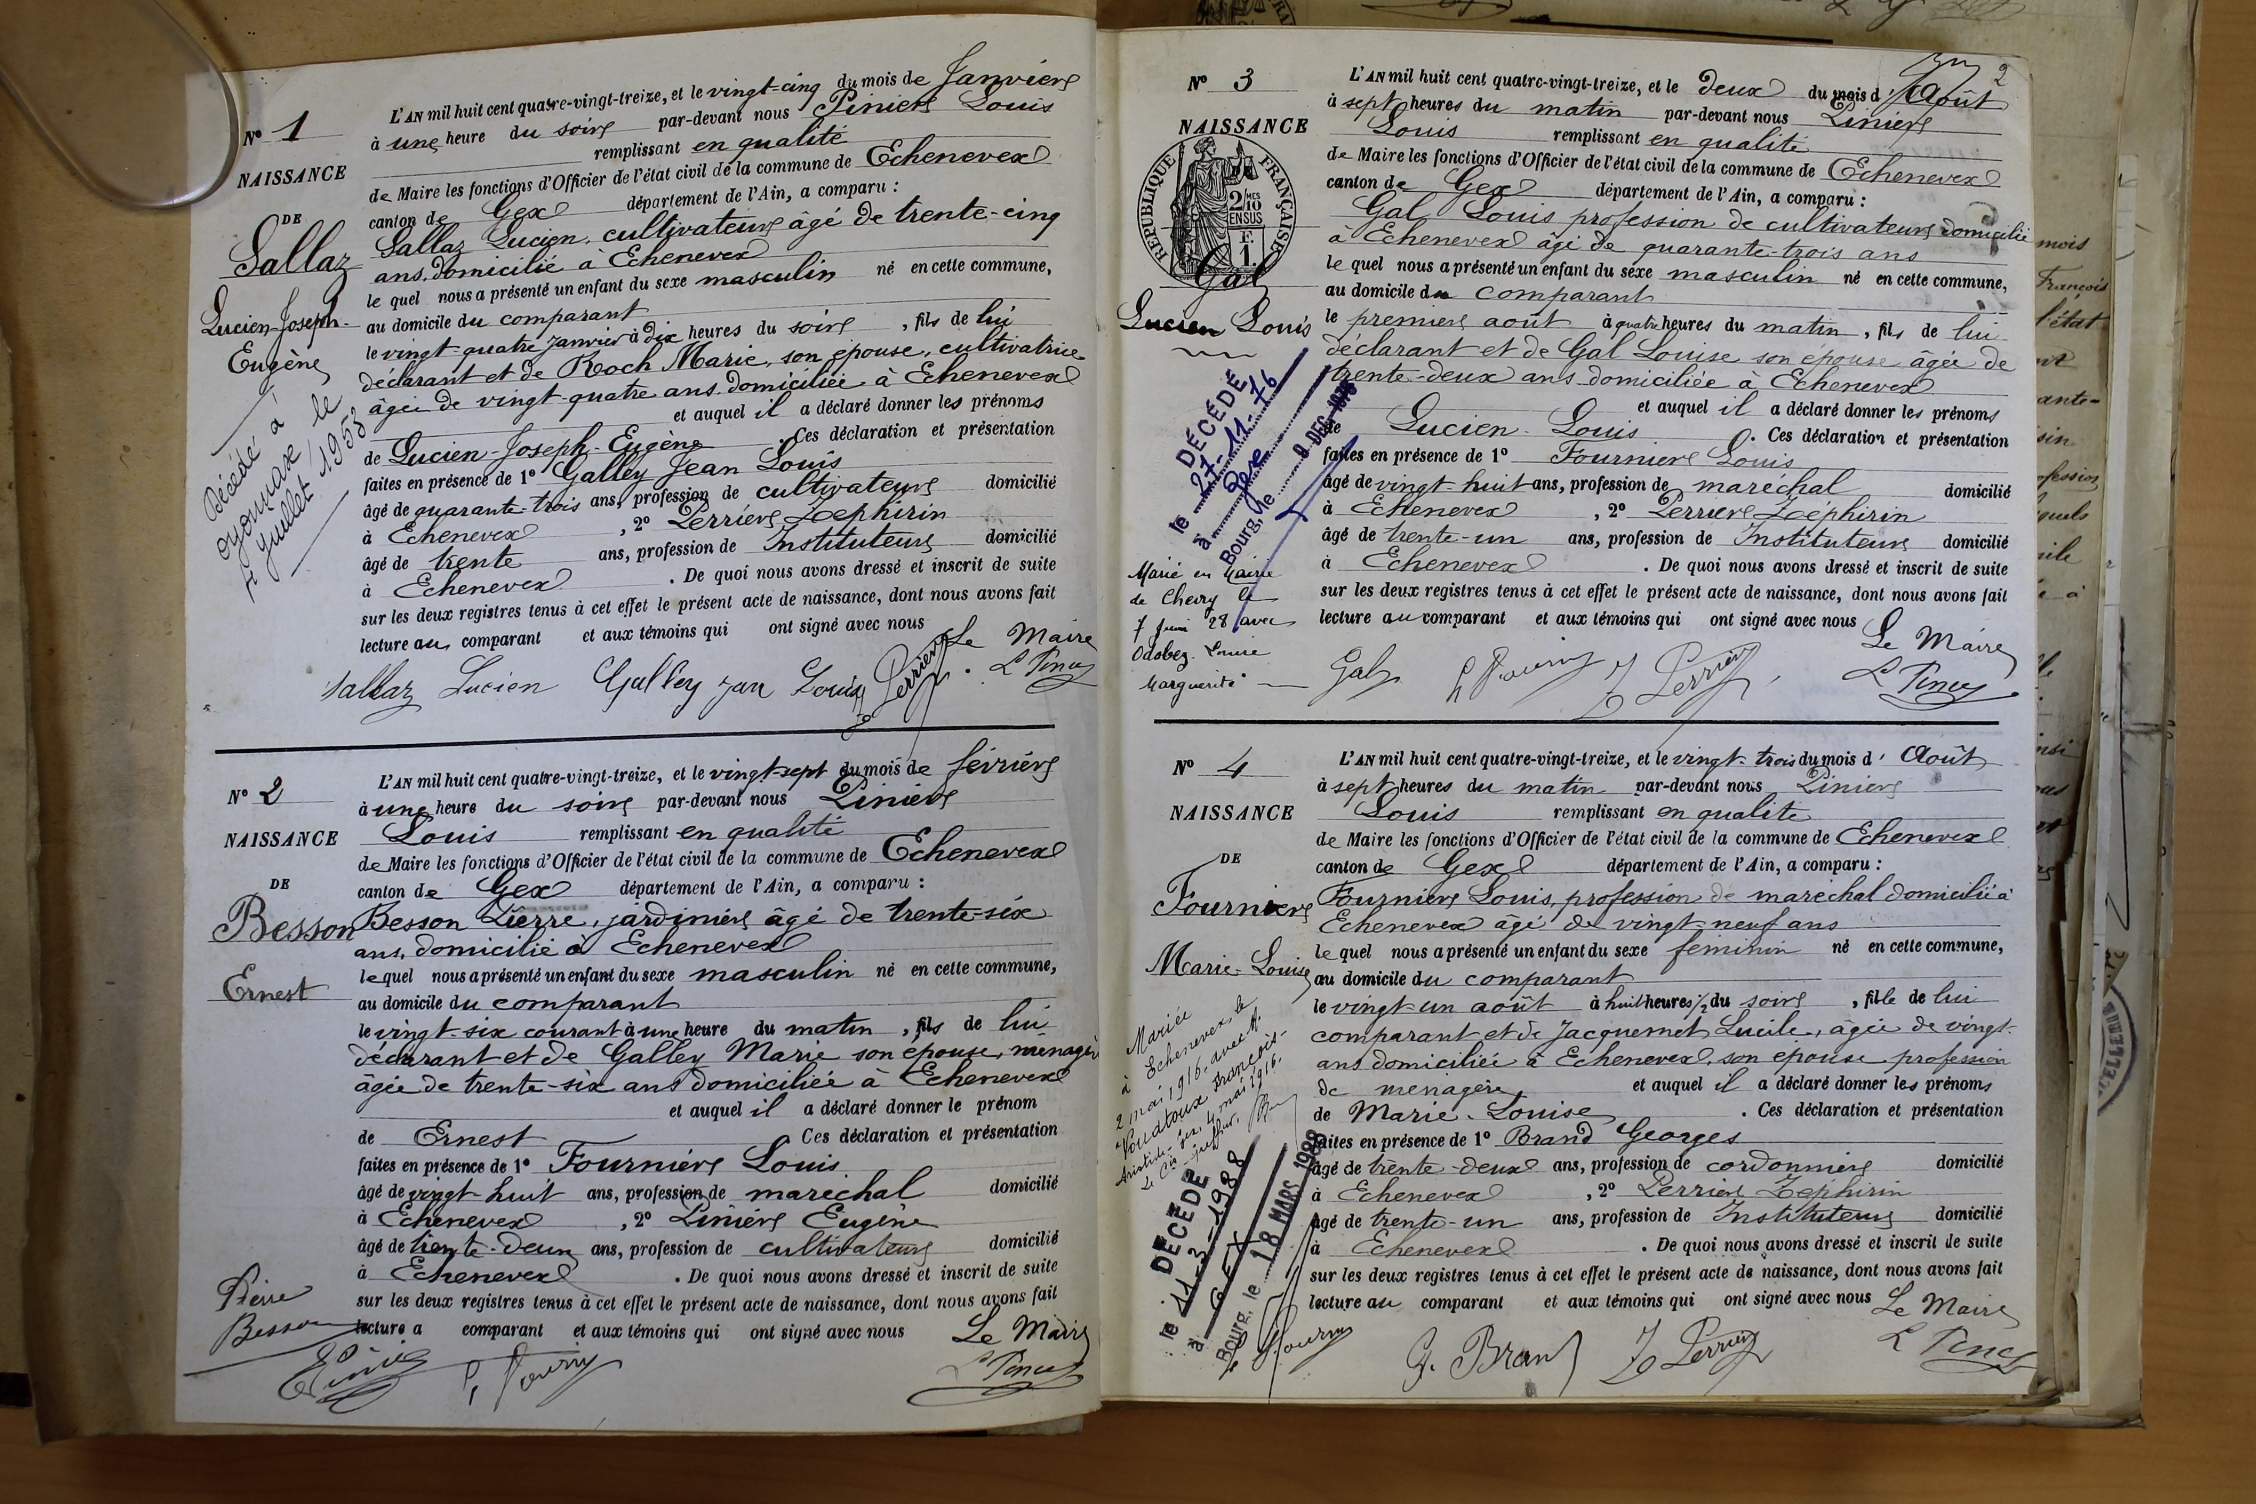 N° 1
NAISSANCE
DE
Sallaz
Lucien-Joseph-
Eugène
Décédé à
Oyonnax le
7 juillet 1953
L'AN mil huit cent quatre-vingt-treize, et le vingt-cinq du mois de Janvier
à une heure du soir par-devant nous Pinier Louis
remplissant en qualité
de Maire les fonctions d'Officier de l'état civil de la commune de Echenevex
canton de Gex département de l'Ain, a comparu :
Sallaz Lucien, cultivateur âgé de trente-cinq
ans, domicilié à Echenevex
le quel nous a présenté un enfant du sexe masculin né en cette commune,
au domicile du comparant
le vingt-quatre Janvier à dix heures du soir, fils de lui
déclarant et de Roch Marie, son épouse, cultivatrice
âgée de vingt-quatre ans domiciliée à Echenevex
et auquel il a déclaré donner les prénoms
de Lucien-Joseph-Eugène. Ces déclaration et présentation
faites en présence de 1° Galley Jean Louis
âgé de quarante-trois ans, profession de cultivateur domicilié
à Echenevex, 2° Perrier Zéphirin
âgé de trente ans, profession de Instituteur domicilié
à Echenevex. De quoi nous avons dressé et inscrit de suite
sur les deux registres tenus à cet effet le présent acte de naissance, dont nous avons fait
lecture au comparant et aux témoins qui ont signé avec nous
Le Maire
Sallaz Lucien Galley jean Louis Z Perrier L Pinier
N° 2
NAISSANCE
DE
Besson
Ernest
L'AN mil huit cent quatre-vingt-treize, et le vingt-sept du mois de février
à une heure du soir par-devant nous Pinier
Louis remplissant en qualité
de Maire les fonctions d'Officier de l'état civil de la commune de Echenevex
canton de Gex département de l'Ain, a comparu :
Besson Pierre, jardinier âgé de trente-six
ans, domicilié à Echenevex
lequel nous a présenté un enfant du sexe masculin né en cette commune,
au domicile du comparant
le vingt-six courant à une heure du matin, fils de lui
déclarant et de Galley Marie son épouse, ménagère
âgée de trente-six ans domiciliée à Echenevex
et auquel il a déclaré donner le prénom
de Ernest Ces déclaration et présentation
faites en présence de 1° Fournier Louis
âgé de vingt-huit ans, profession de maréchal domicilié
à Echenevex, 2° Pinier Eugène
âgé de trente-deux ans, profession de cultivateur domicilié
à Echenevex. De quoi nous avons dressé et inscrit de suite
sur les deux registres tenus à cet effet le présent acte de naissance, dont nous avons fait
lecture a comparant et aux témoins qui ont signé avec nous
Le Maire
Pierre
Besson
E Pinier L Fournier L Pinier
2
N° 3
NAISSANCE
RÉPUBLIQUE FRANÇAISE
2 MES 10 EN SUS
F. 1.
Gal
Lucien Louis
DÉCÉDÉ
le 27-11-76
à Gex
Bourg, le 9 DEC 1976
Marié en Mairie
de Chevry le
7 Juin 28 avec
Odobez Louise
Marguerite
L'AN mil huit cent quatre-vingt-treize, et le deux du mois d'Août
à sept heures du matin par-devant nous Pinier
Louis remplissant en qualité
de Maire les fonctions d'Officier de l'état civil de la commune de Echenevex
canton de Gex département de l'Ain, a comparu :
Gal Louis profession de cultivateur domicilié
à Echenevex âgé de quarante-trois ans
le quel nous a présenté un enfant du sexe masculin né en cette commune,
au domicile du comparant
le premier août à quatre heures du matin, fils de lui
déclarant et de Gal Louise son épouse âgée de
trente-deux ans domiciliée à Echenevex
et auquel il a déclaré donner les prénoms
de Lucien-Louis. Ces déclaration et présentation
faites en présence de 1° Fournier Louis
âgé de vingt-huit ans, profession de maréchal domicilié
à Echenevex, 2° Perrier Zéphirin
âgé de trente-un ans, profession de Instituteur domicilié
à Echenevex. De quoi nous avons dressé et inscrit de suite
sur les deux registres tenus à cet effet le présent acte de naissance, dont nous avons fait
lecture au comparant et aux témoins qui ont signé avec nous
Le Maire
Gal L Fournier Z Perrier L Pinier
N° 4
NAISSANCE
DE
Fournier
Marie-Louise
Mariée
à Echenevex, le
2 mai 1916, avec M.
François-
Aristide. Gex, 4 mai 1916.
Le Cis-greffier,
DÉCÉDÉ
le 11-3-1988
à GEX
Bourg, le 18 MARS 1988
L'AN mil huit cent quatre-vingt-treize, et le vingt-trois du mois d'Août
à sept heures du matin par-devant nous Pinier
Louis remplissant en qualité
de Maire les fonctions d'Officier de l'état civil de la commune de Echenevex
canton de Gex département de l'Ain, a comparu :
Fournier Louis, profession de maréchal domicilié à
Echenevex âgé de vingt-neuf ans
le quel nous a présenté un enfant du sexe féminin né en cette commune,
au domicile du comparant
le vingt-un août à huit heures ½ du soir, fille de lui
comparant et de Jacquemet Lucile, âgée de vingt-
ans domiciliée à Echenevex, son épouse profession
de ménagère et auquel il a déclaré donner les prénoms
de Marie-Louise. Ces déclaration et présentation
faites en présence de 1° Brand Georges
âgé de trente-deux ans, profession de cordonnier domicilié
à Echenevex, 2° Perrier Zéphirin
âgé de trente-un ans, profession de Instituteur domicilié
à Echenevex. De quoi nous avons dressé et inscrit de suite
sur les deux registres tenus à cet effet le présent acte de naissance, dont nous avons fait
lecture au comparant et aux témoins qui ont signé avec nous
Le Maire
L Fournier G. Brand Z Perrier L Pinier
mois
François
l'état